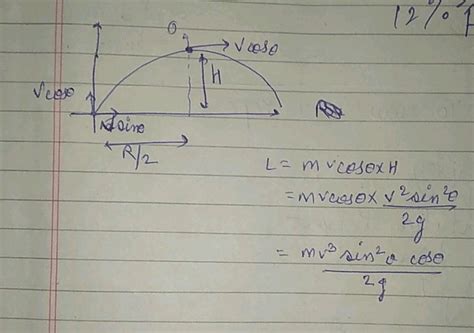 12%
θ
vcosθ
H
vcosθ
vsinθ
R/2
L = mvcosθ×H
= mvcosθ× v²sin²θ
2g
= mv³sin²θ cosθ
2g